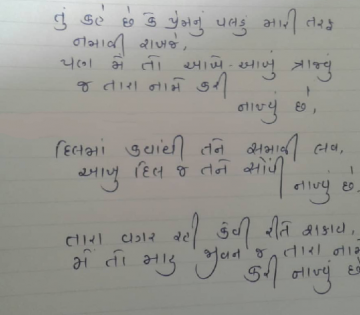 તું કહે છે કે પ્રેમનું પલડું મારી તરફ
નમાવી રાખજે,
પણ મેં તો આખે-આખું ત્રાજવું
જ તારા નામે કરી
નાખ્યું છે,
દિલમાં ક્યાંથી તને સમાવી લવ,
આખુ દિલ જ તને સોંપી
નાખ્યું છે.
તારા વગર રહી કેવી રીતે શકાય,
મેં તો મારુ જીવન જ તારા નામે
કરી નાખ્યું છે